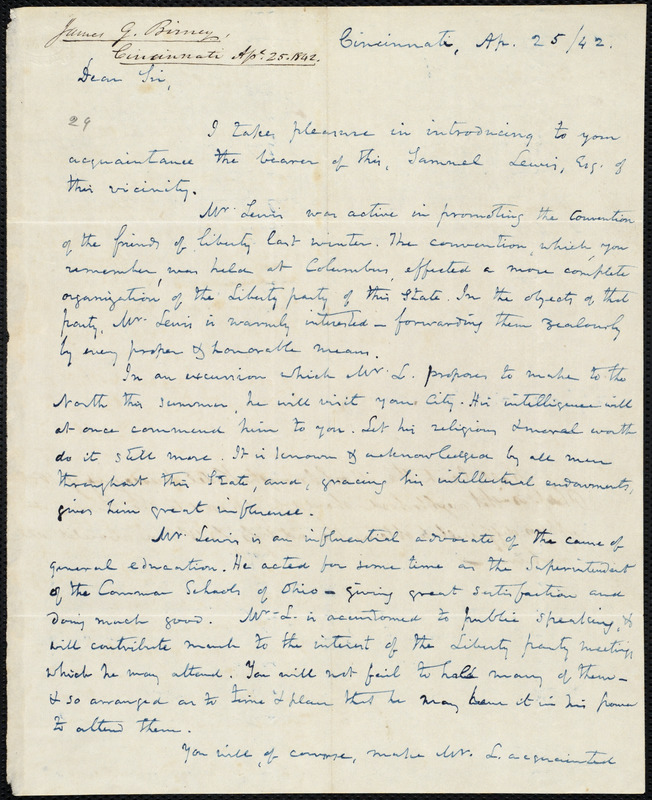 James G. Birney,
Cincinnati Ap. 25. 1842.
Cincinnati, Ap. 25/42.
Dear Sir,
29
I take pleasure in introducing to your
acquaintance the bearer of this, Samuel Lewis, Esq. of
this vicinity.
Mr. Lewis was active in promoting the Convention
of the friends of liberty last winter. The convention, which, you
remember, was held at Columbus, effected a more complete
organization of the Liberty party of this State. In the objects of that
party, Mr. Lewis is warmly interested – forwarding them zealously
by every proper & honorable means.
In an excursion which Mr. L. proposes to make to the
North this summer, he will visit your City. His intelligence will
at once commend him to you. Let his religious & moral worth
do it still more. It is known & acknowledged by all men
throughout this State, and, gracing his intellectual endowments,
gives him great influence.
Mr. Lewis is an influential advocate of the cause of
general education. He acted for some time as the Superintendent
of the Common Schools of Ohio – giving great satisfaction and
doing much good. Mr. L. is accustomed to public speaking, &
will contribute much to the interest of the Liberty party meetings
which he may attend. You will not fail to hold many of them –
& so arranged as to time & place that he may have it in his power
to attend them.
You will, of course, make Mr. L. acquainted